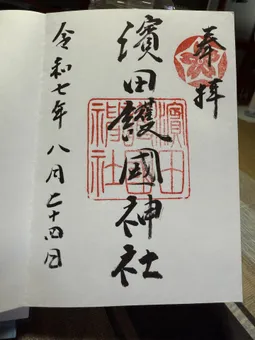 奉拝
濱田護國神社
令和七年八月二十四日